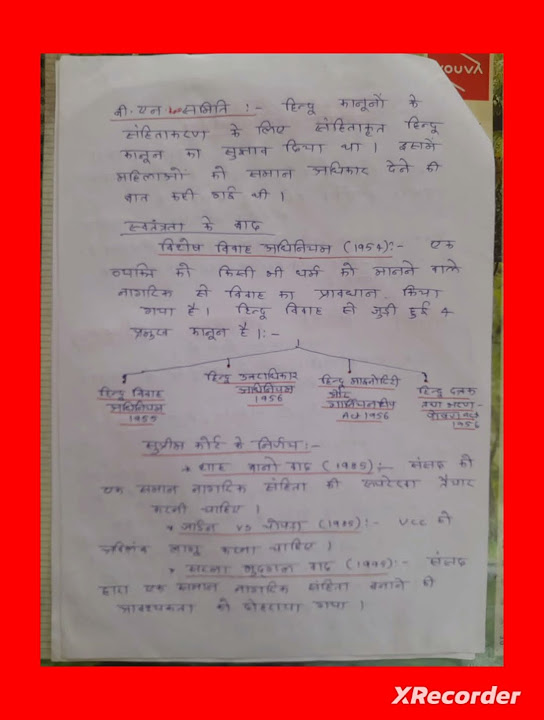 बी. एन. समिति :- हिन्दू कानूनों के
संहिताकरण के लिए संहिताकृत हिन्दू
कानून का सुझाव दिया था। इसमें
महिलाओं को समान अधिकार देने की
बात कही गई थी।
स्वतंत्रता के बाद
विशेष विवाह अधिनियम (1954):- एक
व्यक्ति को किसी भी धर्म को मानने वाले
नागरिक से विवाह का प्रावधान किया
गया है। हिन्दू विवाह से जुड़ी हुई 4
प्रमुख कानून है।:-
हिन्दू विवाह
अधिनियम
1955
हिन्दू उत्तराधिकार
अधिनियम
1956
हिन्दू माइनोरिटी
और
गार्जियनशीप
Act 1956
हिन्दू दत्तक
तथा भरण-
पोषण Act
1956
सुप्रीम कोर्ट के निर्णय:-
→ शाह बानो वाद (1985):- संसद को
एक समान नागरिक संहिता की रूपरेखा तैयार
करनी चाहिए।
→ जॉर्डन vs चोपरा (1985):- UCC को
अविलंब लागू करना चाहिए।
→ सरला मुदगल वाद (1995):- संसद
द्वारा एक समान नागरिक संहिता बनाने की
आवश्यकता को दोहराया गया।
XRecorder